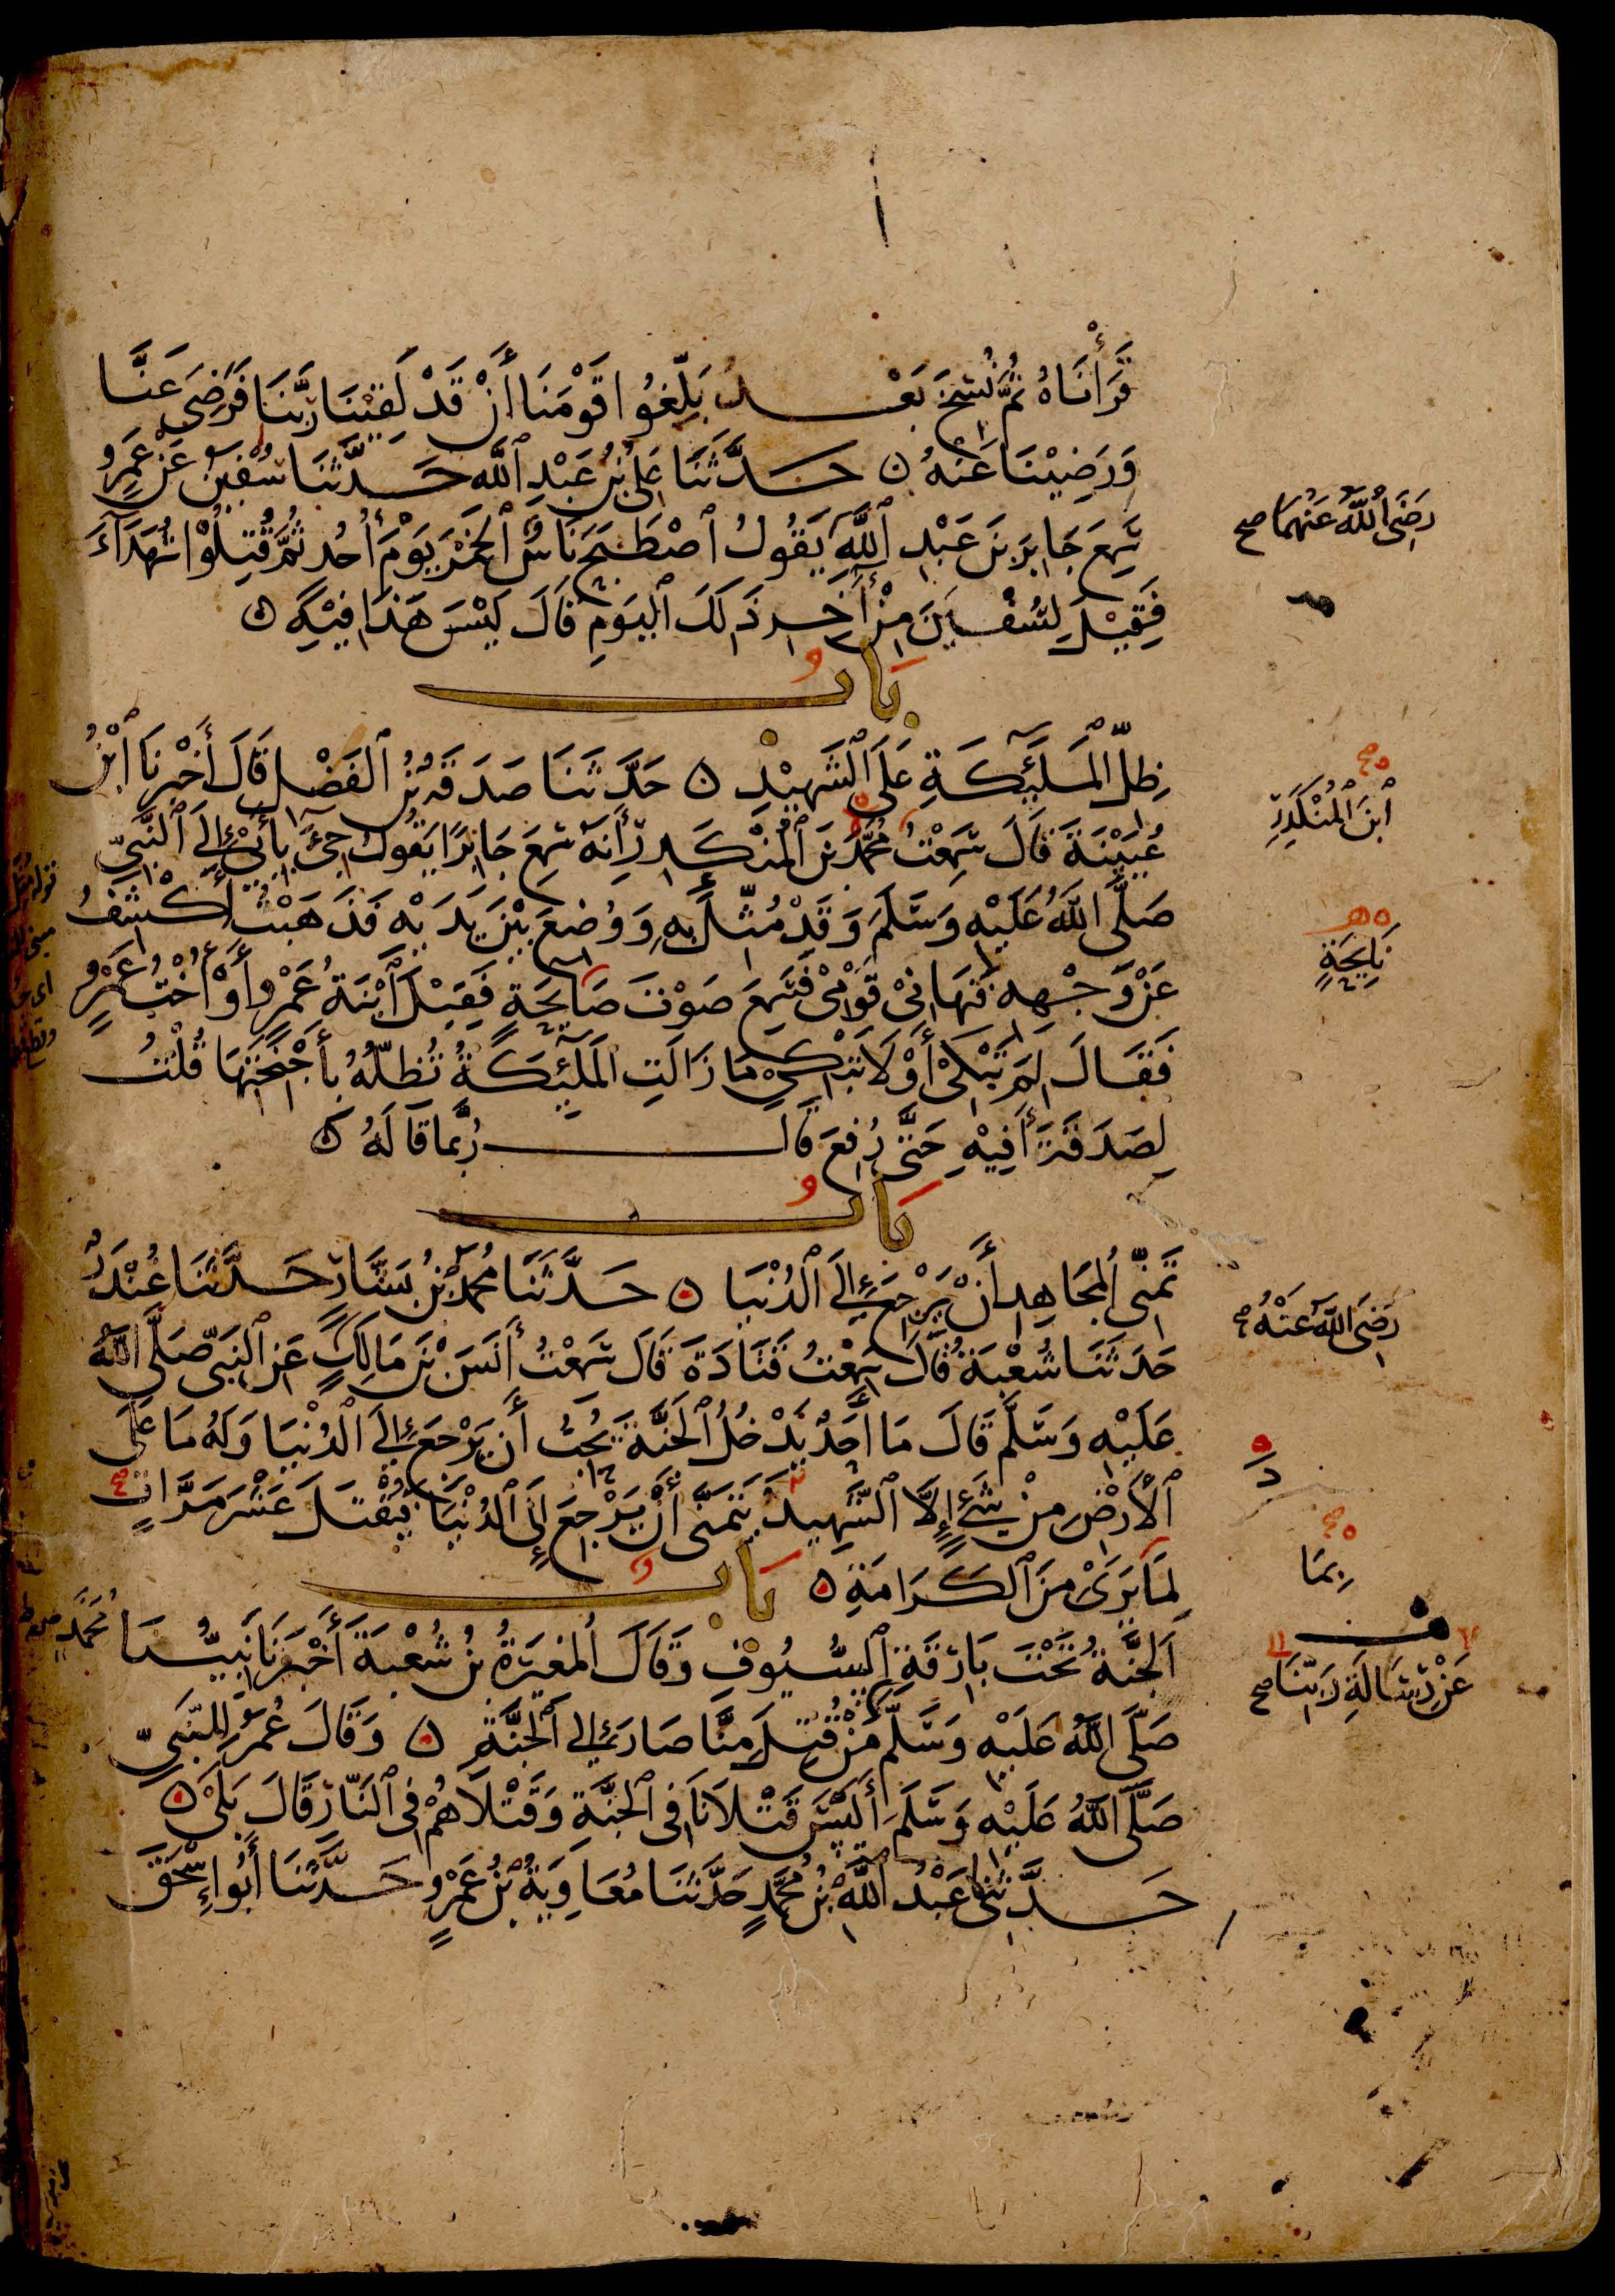 قَرَأْنَاهُ ثُمَّ نُسِخَ بَعْدُ بَلِّغُوا قَوْمَنَا أَنْ قَدْ لَقِيْنَا رَبَّنَا فَرَضِيَ عَنَّا
وَرَضِيْنَا عَنْهُ ۞ حَدَّثَنَا عَلِيُّ بْنُ عَبْدِ ٱللَّهِ حَدَّثَنَا سُفْيٰنُ عَنْ عَمْرٍو
سَمِعَ جَابِرَ بْنَ عَبْدِ ٱللَّهِ يَقُولُ ٱصْطَبَحَ نَاسٌ ٱلْخَمْرَ يَوْمَ أُحُدٍ ثُمَّ قُتِلُوْا شُهَدَآءَ
رَضِيَ ٱللَّهُ عَنْهُمَا صح
فَقِيْلَ لِسُفْيٰنَ مِنْ آخِرِ ذَلِكَ ٱلْيَوْمِ قَالَ لَيْسَ هَذَا فِيْهِ ۞
بَابُ
ظِلِّ ٱلْمَلَئِكَةِ عَلَى ٱلشَّهِيْدِ ۞ حَدَّثَنَا صَدَقَةُ بْنُ ٱلفَضْلِ قَالَ أَخْبَرَنَا ٱبْنُ
عُيَيْنَةَ قَالَ سَمِعْتُ مُحَمَّدَ بْنَ ٱلْمُنْكَدِرِ أَنَّهُ سَمِعَ جَابِرًا يَقُولُ جِيءَ بِأَبِي إِلَى ٱلنَّبِيِّ
ٱبْنَ ٱلْمُنْكَدِرِ
صَلَّى ٱللَّهُ عَلَيْهِ وَسَلَّمَ وَقَدْ مُثِّلَ بِهِ وَوُضِعَ بَيْنَ يَدَيْهِ فَذَهَبْتُ أَكْشِفُ
عَنْ وَجْهِهِ فَنَهَانِيْ قَوْمِيْ فَسَمِعَ صَوْتَ صَائِحَةٍ فَقِيْلَ ٱبْنَةُ عَمْرٍو أَوْ أُخْتُ عَمْرٍو
نَائِحَةٍ
فَقَالَ لِمَ تَبْكِيْ أَوْ لَا تَبْكِيْ مَا زَالَتِ ٱلْمَلَئِكَةُ تُظِلُّهُ بِأَجْنِحَتِهَا قُلْتُ
لِصَدَقَةَ أَفِيْهِ حَتَّى رُفِعَ قَالَ رُبَّمَا قَالَهُ ۞
بَابُ
تَمَنِّي ٱلْمُجَاهِدِ أَنْ يَرْجِعَ إِلَى ٱلدُّنْيَا ۞ حَدَّثَنَا مُحَمَّدُ بْنُ بَشَّارٍ حَدَّثَنَا غُنْدَرٌ
حَدَّثَنَا شُعْبَةُ قَالَ سَمِعْتُ قَتَادَةَ قَالَ سَمِعْتُ أَنَسَ بْنَ مَالِكٍ عَنِ ٱلنَّبِيِّ صَلَّى ٱللَّهُ
رَضِيَ ٱللَّهُ عَنْهُ
عَلَيْهِ وَسَلَّمَ قَالَ مَا أَحَدٌ يَدْخُلُ ٱلْجَنَّةَ يُحِبُّ أَنْ يَرْجِعَ إِلَى ٱلدُّنْيَا وَلَهُ مَا عَلَى
ٱلْأَرْضِ مِنْ شَيْءٍ إِلَّا ٱلشَّهِيْدُ يَتَمَنَّى أَنْ يَرْجِعَ إِلَى ٱلدُّنْيَا فَيُقْتَلَ عَشْرَ مَرَّاتٍ
لِمَا يَرَىْ مِنَ ٱلْكَرَامَةِ ۞ بَابُ
بِمَا
ٱلْجَنَّةُ تَحْتَ بَارِقَةِ ٱلسُّيُوْفِ وَقَالَ ٱلْمُغِيْرَةُ بْنُ شُعْبَةَ أَخْبَرَنَا نَبِيُّنَا
مُحَمَّدٌ
عَنْ رِسَالَةِ رَبِّنَا صح
صَلَّى ٱللَّهُ عَلَيْهِ وَسَلَّمَ مَنْ قُتِلَ مِنَّا صَارَ إِلَى ٱلْجَنَّةِ ۞ وَقَالَ عُمَرُ لِلنَّبِيِّ
صَلَّى ٱللَّهُ عَلَيْهِ وَسَلَّمَ أَلَيْسَ قَتْلَانَا فِي ٱلْجَنَّةِ وَقَتْلَاهُمْ فِي ٱلنَّارِ قَالَ بَلَىْ ۞
حَدَّثَنِي عَبْدُ ٱللَّهِ بْنُ مُحَمَّدٍ حَدَّثَنَا مُعَاوِيَةُ بْنُ عَمْرٍو حَدَّثَنَا أَبُو إِسْحٰقَ